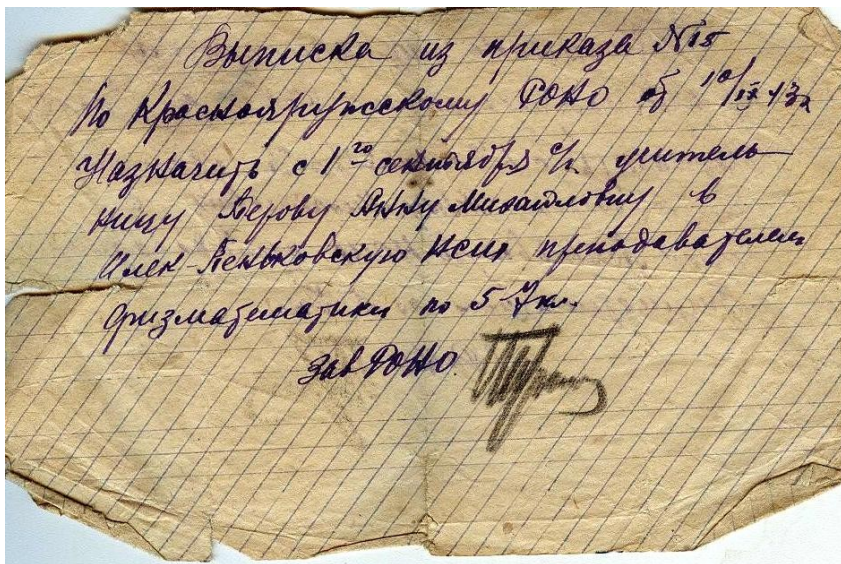 Выписка из приказа N15
По Краснояружскому РОНО от 10/IX 43г
Назначить с 1го сентября с/г. учитель
ницу Перову Анну Михайловну в
Илек-Пеньковскую НСШ преподавателем
физматематики по 5-7 кл.
Зав РОНО.